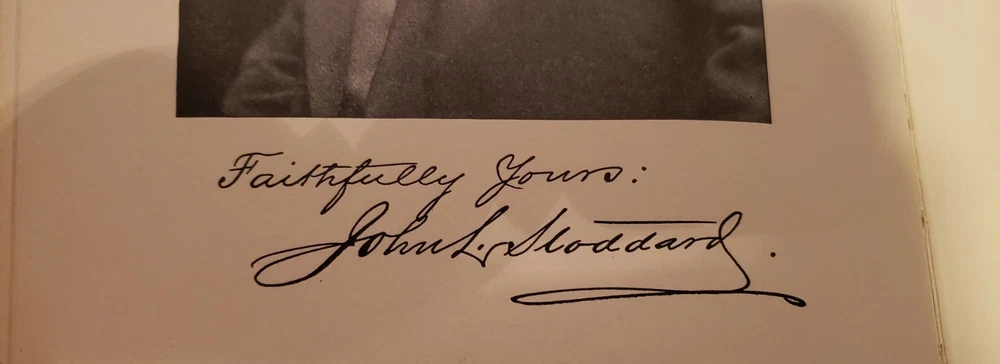 Faithfully Yours:
John L. Stoddard.